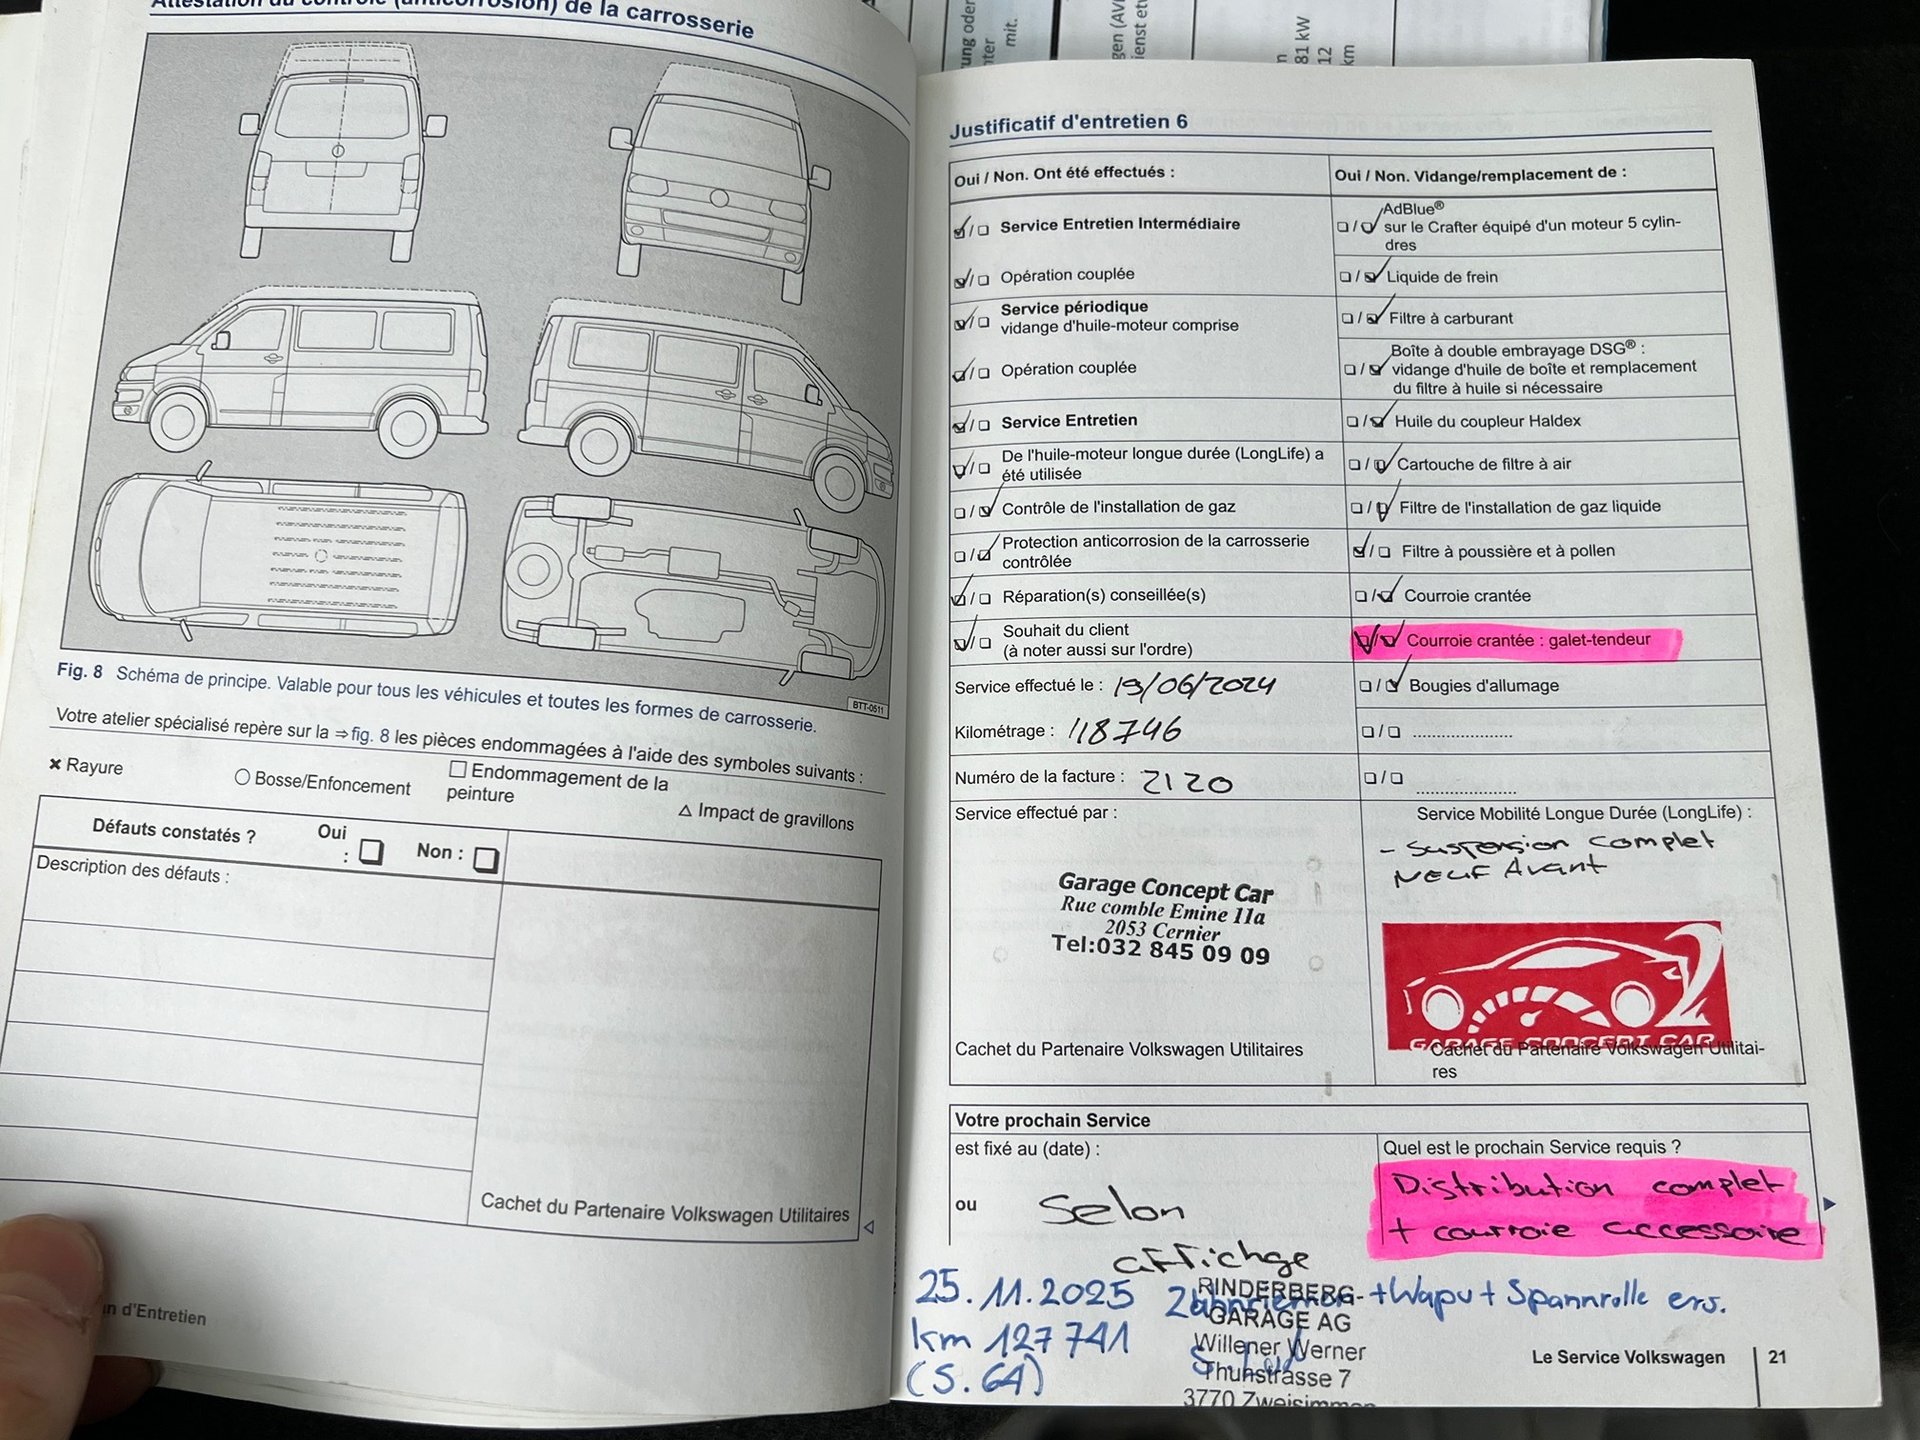 Attestation du contrôle (anticorrosion) de la carrosserie
BTT-0511
Fig. 8 Schéma de principe. Valable pour tous les véhicules et toutes les formes de carrosserie.
Votre atelier spécialisé repère sur la ⇒ fig. 8 les pièces endommagées à l'aide des symboles suivants :
× Rayure
○ Bosse/Enfoncement
□ Endommagement de la
peinture
△ Impact de gravillons
Défauts constatés ?
Oui
: □
Non : □
Description des défauts :
Cachet du Partenaire Volkswagen Utilitaires
n d'Entretien
mit.
81 kW
12
km
Justificatif d'entretien 6
Oui / Non. Ont été effectués :
☑/□ Service Entretien Intermédiaire
☑/□ Opération couplée
☑/□ Service périodique
vidange d'huile-moteur comprise
☑/□ Opération couplée
☑/□ Service Entretien
☑/□ De l'huile-moteur longue durée (LongLife) a
été utilisée
□/☑ Contrôle de l'installation de gaz
□/☑ Protection anticorrosion de la carrosserie
contrôlée
☑/□ Réparation(s) conseillée(s)
☑/□ Souhait du client
(à noter aussi sur l'ordre)
Service effectué le : 19/06/2024
Kilométrage : 118746
Numéro de la facture : 2120
Service effectué par :
Garage Concept Car
Rue comble Emine 11a
2053 Cernier
Tel:032 845 09 09
Cachet du Partenaire Volkswagen Utilitaires
Oui / Non. Vidange/remplacement de :
□/☑ AdBlue®
sur le Crafter équipé d'un moteur 5 cylin-
dres
□/☑ Liquide de frein
□/☑ Filtre à carburant
□/☑ Boîte à double embrayage DSG® :
vidange d'huile de boîte et remplacement
du filtre à huile si nécessaire
□/☑ Huile du coupleur Haldex
□/☑ Cartouche de filtre à air
□/☑ Filtre de l'installation de gaz liquide
☑/□ Filtre à poussière et à pollen
□/☑ Courroie crantée
☑/☑ Courroie crantée : galet-tendeur
□/☑ Bougies d'allumage
□/□ .....................
□/□ .....................
Service Mobilité Longue Durée (LongLife) :
- Suspension complet
Neuf Avant
GARAGE CONCEPT CAR
Cachet du Partenaire Volkswagen Utilitai-
res
Votre prochain Service
est fixé au (date) :
ou
Selon
affichge
Quel est le prochain Service requis ?
Distribution complet
+ courroie accessoire
25.11.2025 Zahnriemen +Wapu + Spannrolle ers.
km 127741
(S. 64)
RINDERBERG-
GARAGE AG
Willener Werner
Thunstrasse 7
3770 Zweisimmen
Le Service Volkswagen 21